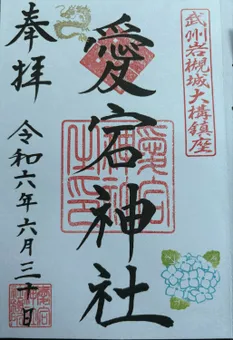 武州岩槻城大構鎮座
愛宕神社
奉拝
令和六年六月三十日